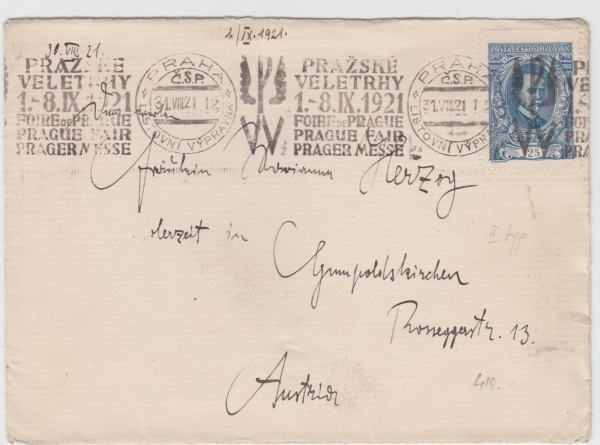 30.VIII.21.
1./IX.1921.
PRAŽSKÉ VELETRHY 1.-8.IX.1921 FOIRE DE PRAGUE PRAGUE FAIR PRAGER MESSE
* PRAHA * Č.S.P. 31.VIII.21 12 LISTOVNÍ VÝPRAVNA
PRAŽSKÉ VELETRHY 1.-8.IX.1921 FOIRE DE PRAGUE PRAGUE FAIR PRAGER MESSE
* PRAHA * Č.S.P. 31.VIII.21 12 LISTOVNÍ VÝPRAVNA
POŠTA ČESKOSLOVENSKÁ
125
Fräulein Marianna Herzog
derzeit in
Gumpoldskirchen
Roseggerstr. 13.
Austria
II typ